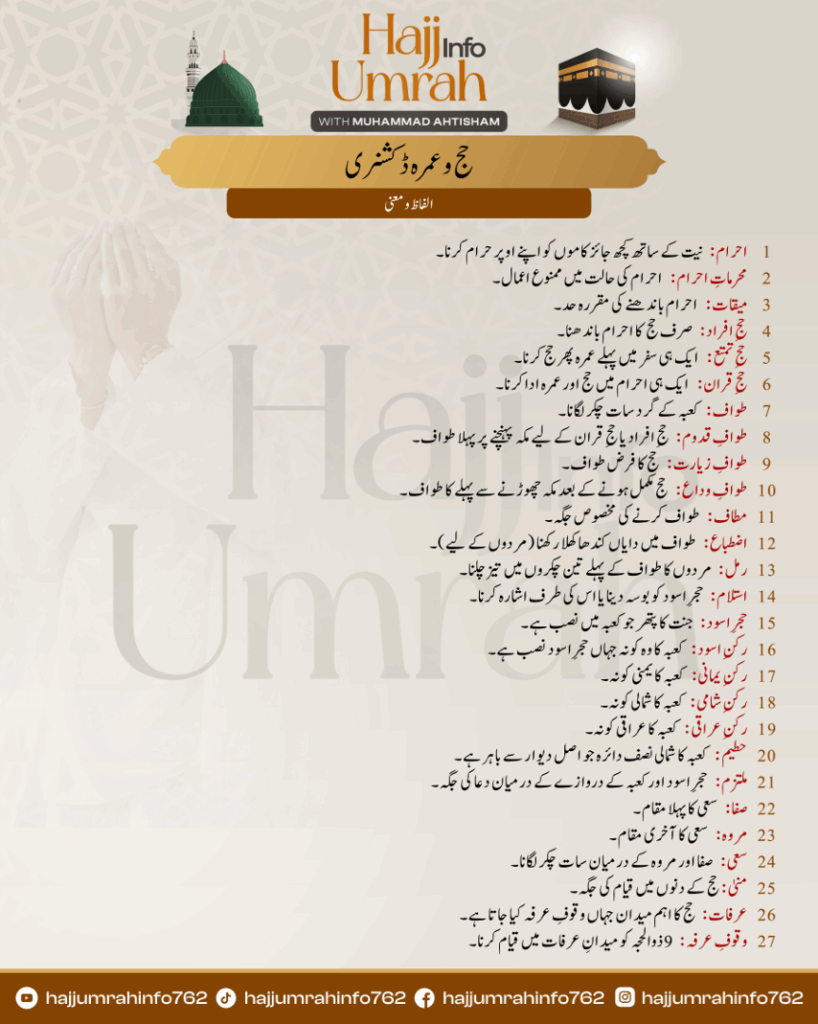 Hajj Info
Umrah
WITH MUHAMMAD AHTISHAM
حج و عمرہ ڈکشنری
الفاظ و معنی
1 احرام: نیت کے ساتھ کچھ جائز کاموں کو اپنے اوپر حرام کرنا۔
2 محرماتِ احرام: احرام کی حالت میں ممنوع اعمال۔
3 میقات: احرام باندھنے کی مقررہ حد۔
4 حجِ افراد: صرف حج کا احرام باندھنا۔
5 حجِ تمتع: ایک ہی سفر میں پہلے عمرہ پھر حج کرنا۔
6 حجِ قران: ایک ہی احرام میں حج اور عمرہ ادا کرنا۔
7 طواف: کعبہ کے گرد سات چکر لگانا۔
8 طوافِ قدوم: حجِ افراد یا حجِ قران کے لیے مکہ پہنچنے پر پہلا طواف۔
9 طوافِ زیارت: حج کا فرض طواف۔
10 طوافِ وداع: حج مکمل ہونے کے بعد مکہ چھوڑنے سے پہلے کا طواف۔
11 مطاف: طواف کرنے کی مخصوص جگہ۔
12 اضطباع: طواف میں دایاں کندھا کھلا رکھنا (مردوں کے لیے)۔
13 رمل: مردوں کا طواف کے پہلے تین چکروں میں تیز چلنا۔
14 استلام: حجرِ اسود کو بوسہ دینا یا اس کی طرف اشارہ کرنا۔
15 حجرِ اسود: جنت کا پتھر جو کعبہ میں نصب ہے۔
16 رکنِ اسود: کعبہ کا وہ کونہ جہاں حجرِ اسود نصب ہے۔
17 رکنِ یمانی: کعبہ کا یمنی کونہ۔
18 رکنِ شامی: کعبہ کا شمالی کونہ۔
19 رکنِ عراقی: کعبہ کا عراقی کونہ۔
20 حطیم: کعبہ کا شمالی نصف دائرہ جو اصل دیوار سے باہر ہے۔
21 ملتزم: حجرِ اسود اور کعبہ کے دروازے کے درمیان دعا کی جگہ۔
22 صفا: سعی کا پہلا مقام۔
23 مروہ: سعی کا آخری مقام۔
24 سعی: صفا اور مروہ کے درمیان سات چکر لگانا۔
25 منیٰ: حج کے دنوں میں قیام کی جگہ۔
26 عرفات: حج کا اہم میدان جہاں وقوفِ عرفہ کیا جاتا ہے۔
27 وقوفِ عرفہ: 9 ذوالحجہ کو میدانِ عرفات میں قیام کرنا۔
Hajj Info
Umrah
hajjumrahinfo762 hajjumrahinfo762 hajjumrahinfo762 hajjumrahinfo762